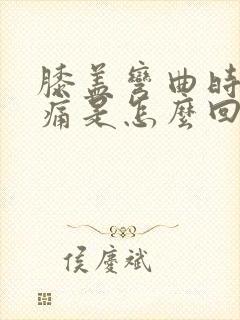 膝盖彎曲時
痛是怎麼回
侯慶斌